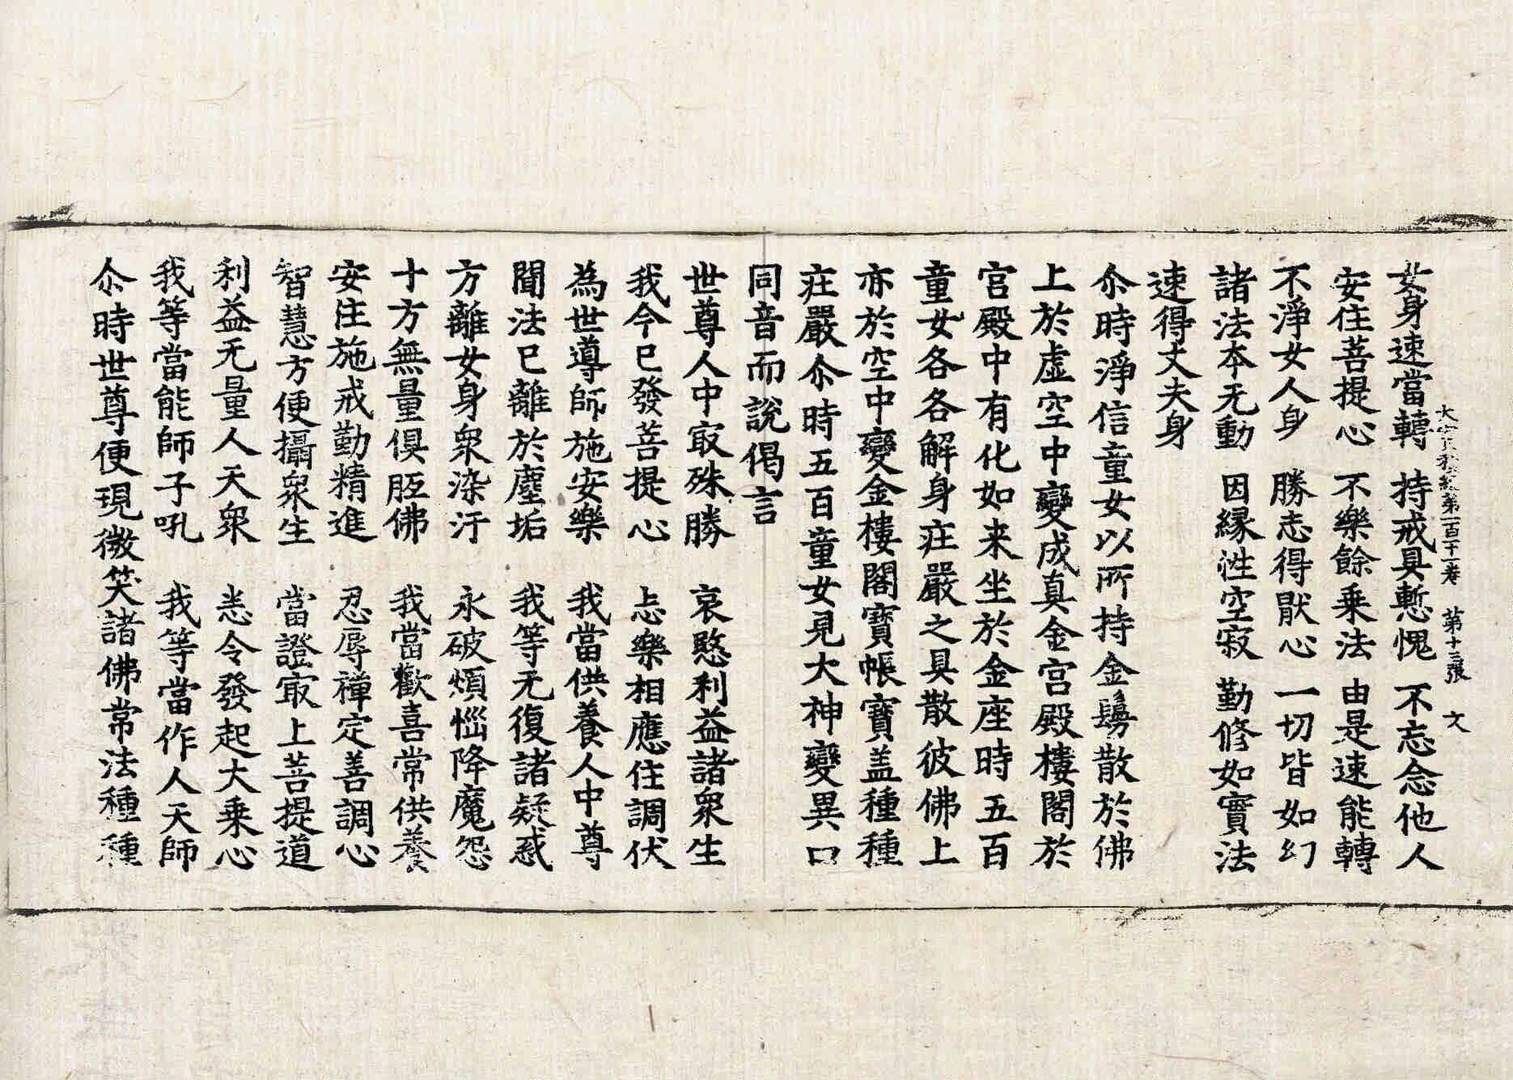 大寶積經第一百十一卷 第十三張 文
女身速當轉 持戒具慙愧 不忘念他人
安住菩提心 不樂餘乘法 由是速能轉
不淨女人身 勝志得猒心 一切皆如幻
諸法本无動 因緣性空寂 勤修如實法
速得丈夫身
尒時淨信童女以所持金鬘散於佛
上於虛空中變成真金宮殿樓閣於
宮殿中有化如来坐於金座時五百
童女各各解身莊嚴之具散彼佛上
亦於空中變金樓閣寶帳寶盖種種
莊嚴尒時五百童女見大神變異口
同音而說偈言
世尊人中㝡殊勝 哀愍利益諸衆生
我今已發菩提心 忘樂相應住調伏
為世導師施安樂 我當供養人中尊
聞法已離於塵垢 我等无復諸疑惑
方離女身衆染汙 永破煩惱降魔怨
十方無量俱胝佛 我當歡喜常供養
安住施戒勤精進 忍辱禪定善調心
智慧方便攝衆生 當證㝡上菩提道
利益无量人天衆 悉令發起大乘心
我等當能師子吼 我等當作人天師
尒時世尊便現微笑諸佛常法種種